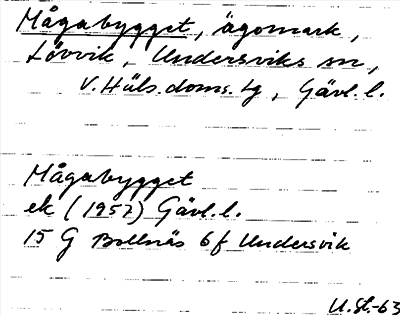 Mågabygget, ägomark,
Lövvik, Undersviks sn,
V. Häls. doms. tg, Gävl. l.
Mågabygget
ek (1957) Gävl. l.
15 G Bollnäs 6 f Undersvik
U. St. -63